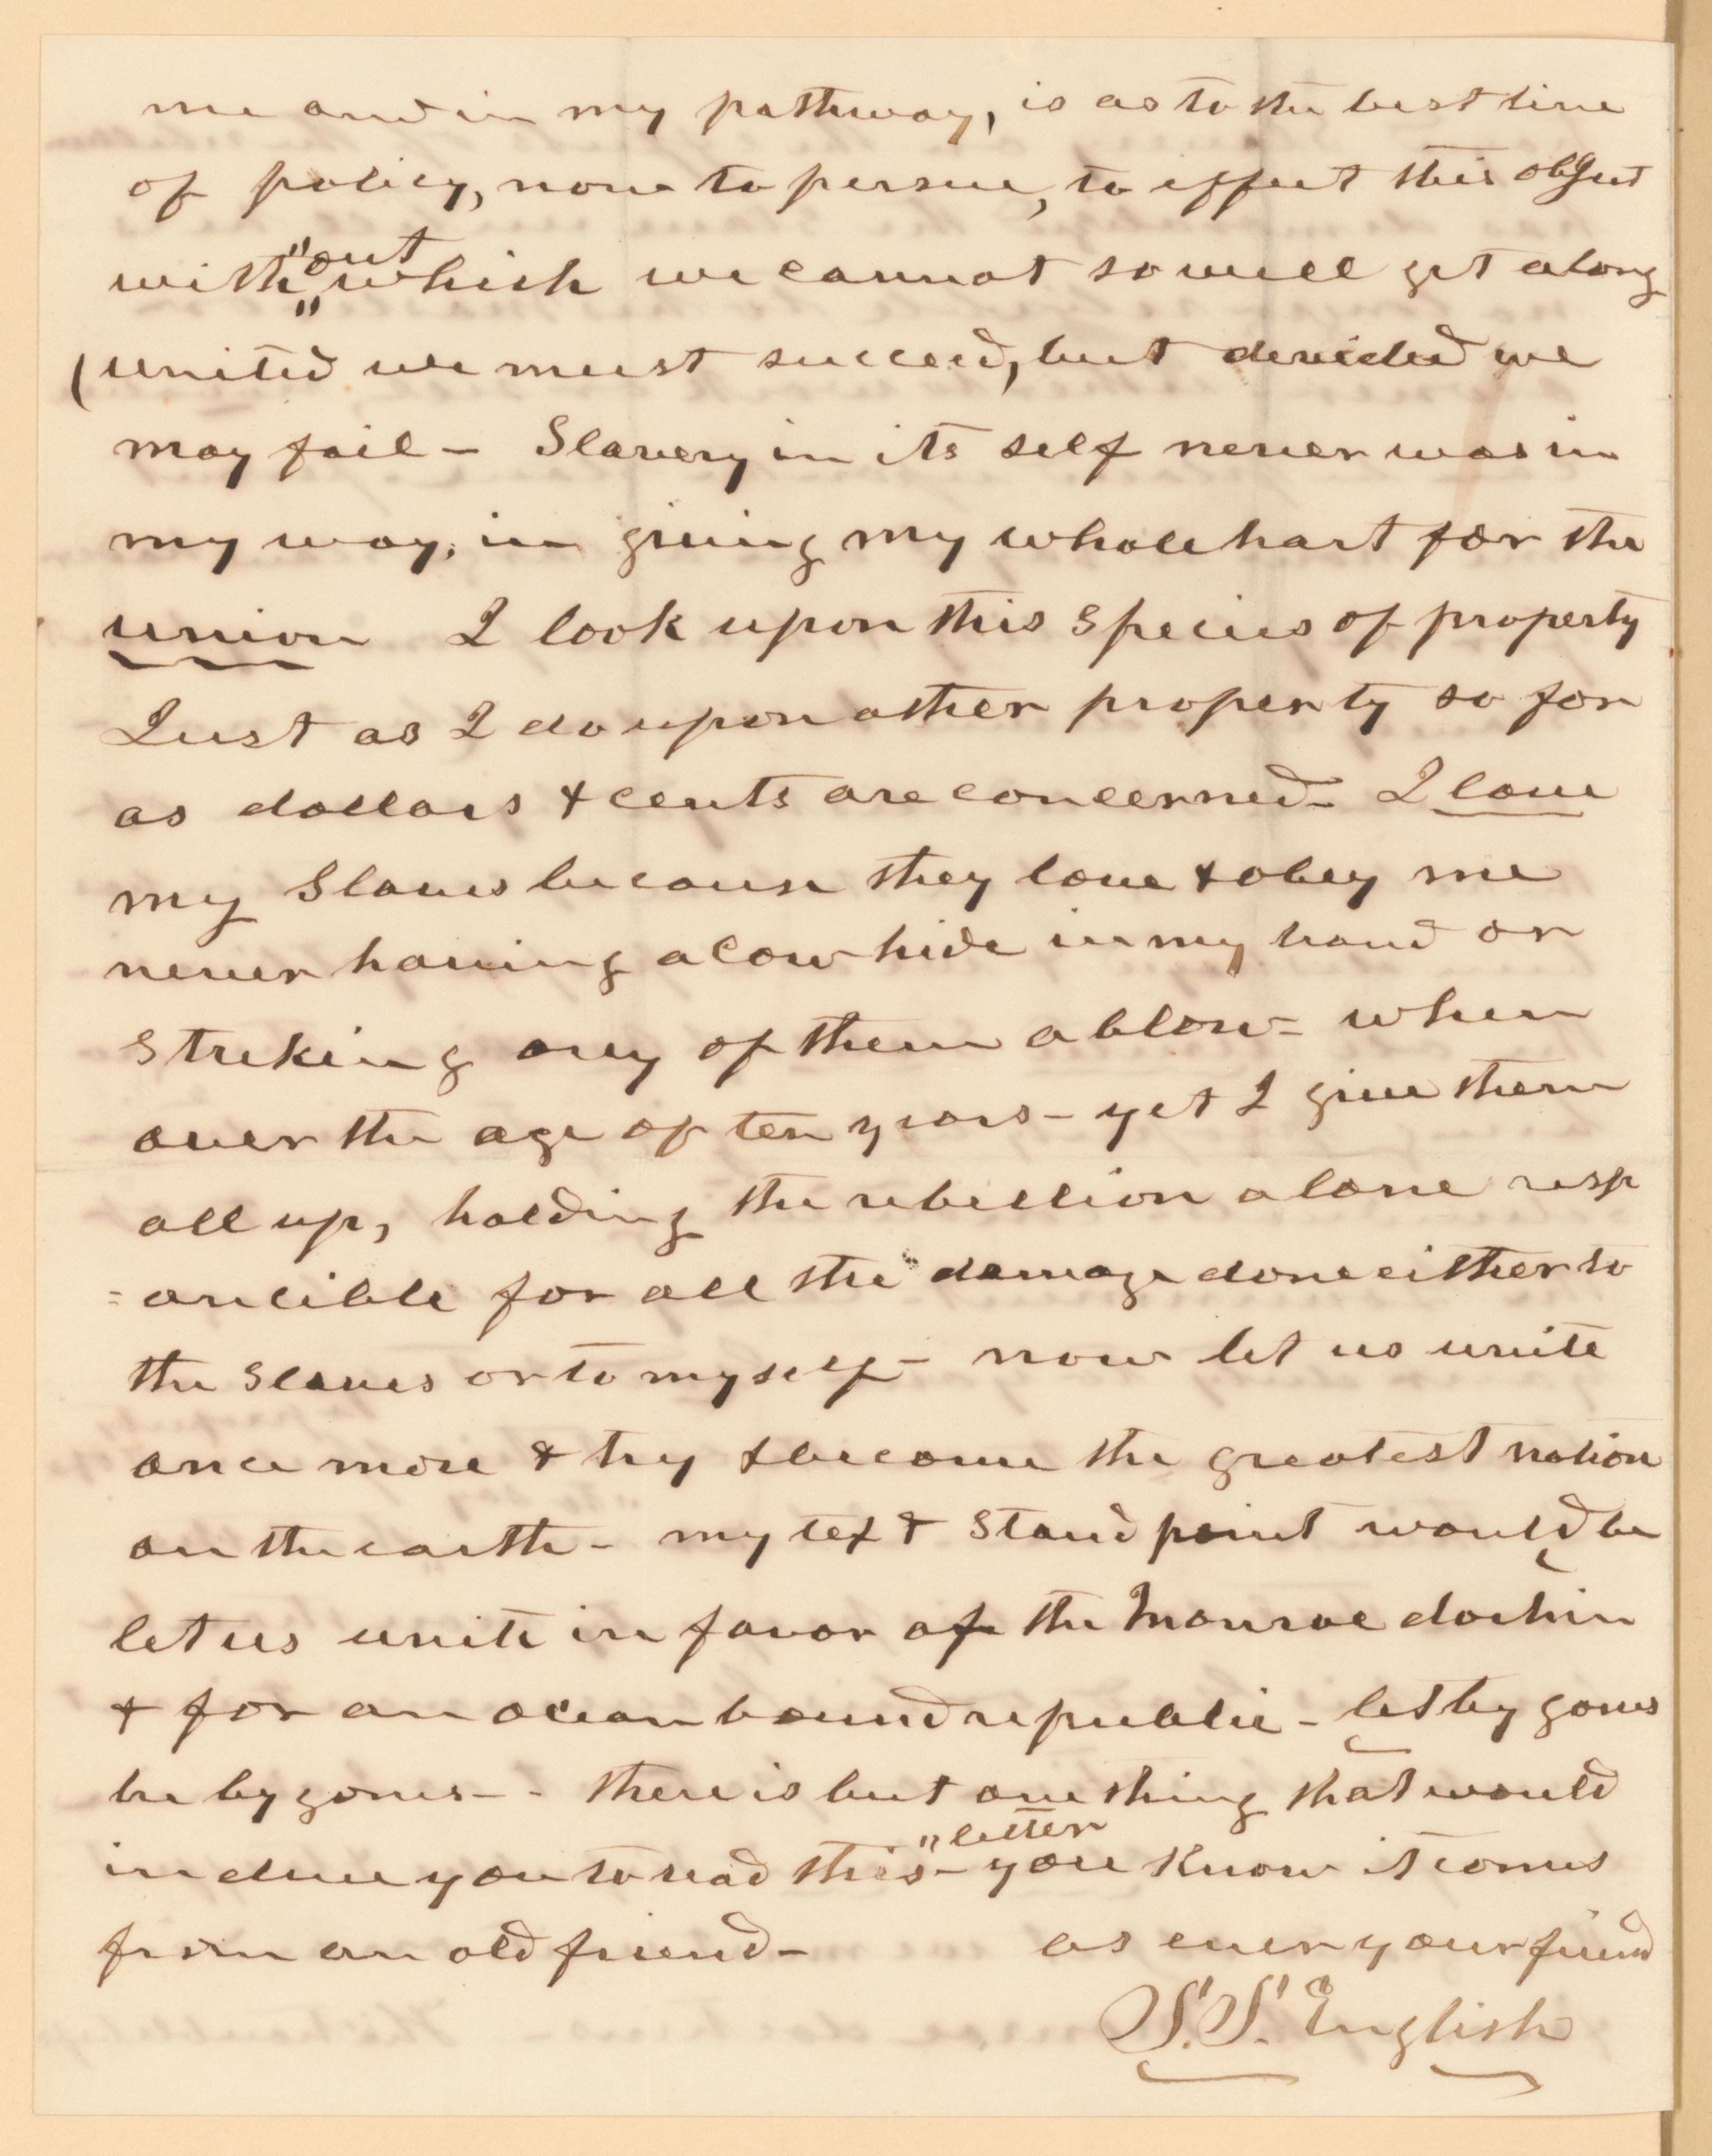 me and in my pathway, is as to the best line
of policy, now to persue, to effect this object
with "out" which we cannot so well get along
(united we must succeed, but devided we
may fail - Slavery in its self never was in
my way, in giving my whole hart for the
union I look upon this Species of property
Just as I do upon other property so far
as dollars & cents are concerned - I love
my Slaves because they love & obey me
never having a Cow hide in my hand or
Strikeing any of them a blow - when
over the age of ten years - yet I give them
all up, holding the rebellion alone resp
=oncible for all the damage done either to
the Slaves or to my self - now let us unite
once more & try & become the greatest nation
on the earth - my text & Stand point would be
let us unite in favor of the Monroe doctrin
& for an ocean bound republic - let by gones
be by gones - - there is but one thing that would
induce you to read this "letter - you Know it comes
from an old friend - as ever your friend
S. S. English